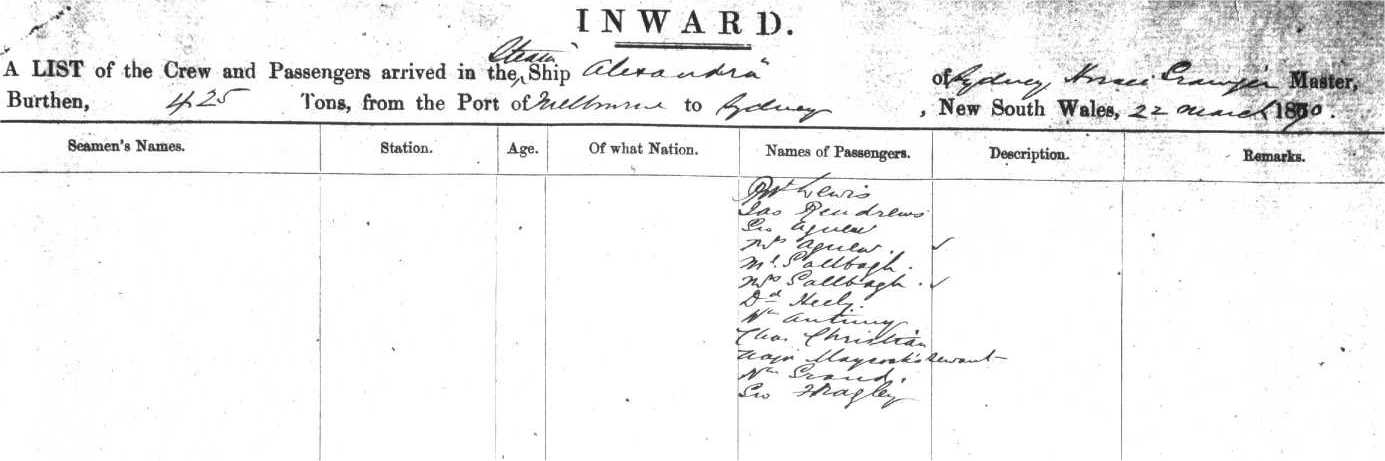 INWARD.
Steam
A LIST of the Crew and Passengers arrived in the Ship "Alexandra" of Sydney, Horace Master,
Burthen, 425 Tons, from the Port of Melbourne to Sydney, New South Wales, 22 March 1870.
Seamen's Names. Station. Age. Of what Nation. Names of Passengers. Description. Remarks.
Lewis
Jas
Geo Agnew
Mrs Agnew. ✓
Mr Sallbagh.
Mrs Sallbagh. ✓
Dd Heely
Wm
Chas Christian
Servant
Wm
Geo